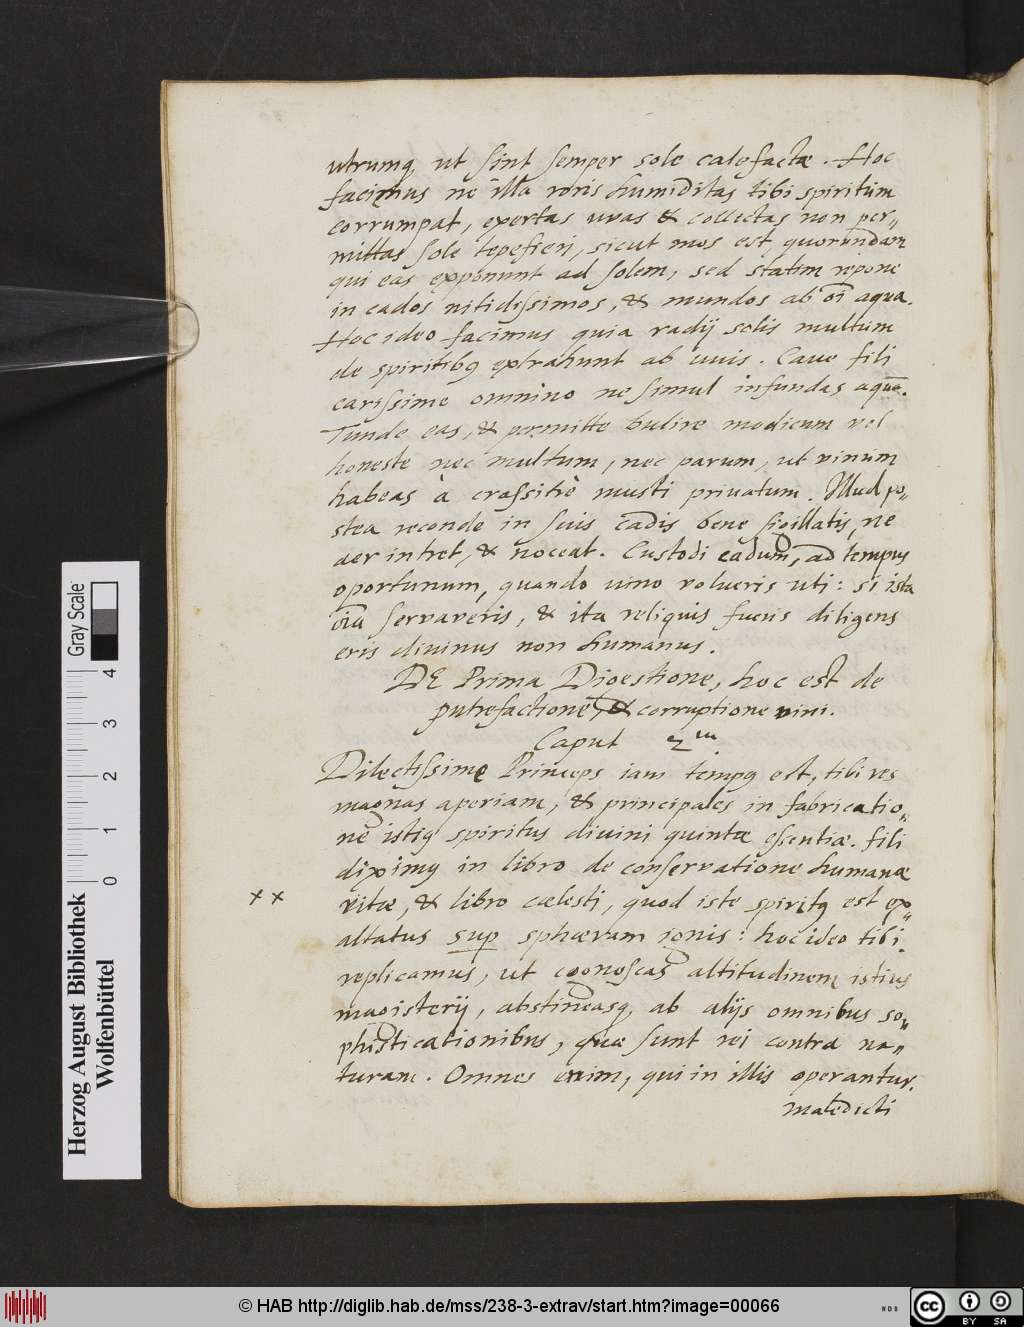 utrumq, ut sint semper sole calefactæ. Hoc
facimus ne illa roris humiditas tibi spiritum
corrumpat, exertas uvas & collectas non per„
mittas sole tepefieri, sicut mos est quorundam
qui eas exponunt ad solem, sed statim repone
in cados nitidissimos, & mundos ab oī aqua.
Hoc ideo facimus quia radij solis multum
de spiritibq extrahunt ab uuis. Caue fili
carissime omnino ne simul infundas aquā.
Tunde eas, & permitte bulire modicum vel
honeste nec multum, nec parum, ut vinum
habeas à crassitiè musti priuatum. Illud po„
stea reconde in suis cadis bene sigillatis, ne
aer intret, & noceat. Custodi cadum, ad tempus
oportunum, quando uino volueris uti: si ista
oīa servaveris, & ita reliquis fueris diligens
eris divinus non humanus.
DE Prima Digestione, hoc est de
putrefactione, & corruptione vini.
Caput 2m
Dilectissime Princeps iam tempq est, tibi res
magnas aperiam, & principales in fabricatio„
ne istiq spiritus divini quintæ essentiæ. fili
diximq in libro de conservatione humanæ
vitæ, & libro cælesti, quod iste spiritq est ex„
altatus sup sphæram ignis: hoc ideo tibi
replicamus, ut cognoscas altitudinem istius
magisterij, abstineasq, ab alijs omnibus so„
phisticationibus, quæ sunt rei contra na„
turam. Omnes enim, qui in illis operantur,
maledicti
××
Herzog August Bibliothek
Wolfenbüttel
0 1 2 3 4
Gray Scale
© HAB http://diglib.hab.de/mss/238-3-extrav/start.htm?image=00066
cc BY SA